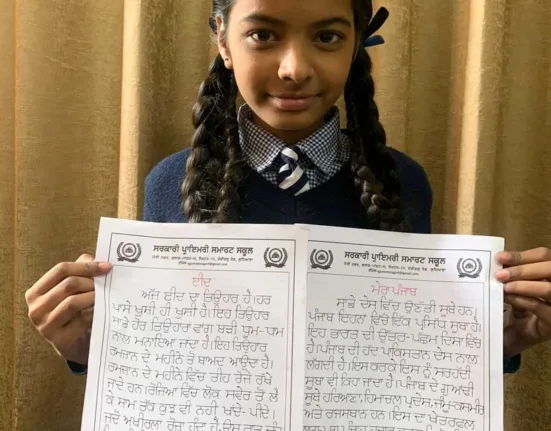 ਸਰਕਾਰੀ ਪ੍ਰਾਇਮਰੀ ਸਮਾਰਟ ਸਕੂਲ
ਈਦ
ਅੱਜ ਈਦ ਦਾ ਤਿਉਹਾਰ ਹੈ। ਹਰ
ਪਾਸੇ ਖੁਸ਼ੀ ਹੀ ਖੁਸ਼ੀ ਹੈ। ਇਹ ਤਿਉਹਾਰ
ਸਾਡੇ ਹੋਰ ਤਿਉਹਾਰ ਵਾਂਗ ਬੜੀ ਧੂਮ-ਧਾਮ
ਨਾਲ ਮਨਾਇਆ ਜਾਂਦਾ ਹੈ। ਇਹ ਤਿਉਹਾਰ
ਰਮਜਾਨ ਦੇ ਮਹੀਨੇ ਤੋਂ ਬਾਅਦ ਆਉਂਦਾ ਹੈ।
ਰਮਜਾਨ ਦੇ ਮਹੀਨੇ ਵਿੱਚ ਤੀਹ ਰੋਜੇ ਰੱਖੇ
ਜਾਂਦੇ ਹਨ। ਰੋਜਿਆਂ ਵਿੱਚ ਲੋਕ ਸਵੇਰ ਤੋਂ ਲੈ
ਕੇ ਸ਼ਾਮ ਤੱਕ ਕੁਝ ਵੀ ਨਹੀਂ ਖਾਂਦੇ-ਪੀਂਦੇ।
ਜਦੋਂ ਅਖੀਰਲਾ ਰੋਜਾ ਹੁੰਦਾ ਹੈ
ਸਰਕਾਰੀ ਪ੍ਰਾਇਮਰੀ ਸਮਾਰਟ ਸਕੂਲ
ਮੇਰਾ ਪੰਜਾਬ
ਸਾਡੇ ਦੇਸ਼ ਵਿੱਚ ਉਣੱਤੀ ਸੂਬੇ ਹਨ।
ਪੰਜਾਬ ਇਹਨਾਂ ਵਿੱਚੋਂ ਇੱਕ ਪ੍ਰਸਿੱਧ ਸੂਬਾ ਹੈ।
ਇਹ ਭਾਰਤ ਦੀ ਉੱਤਰ-ਪੱਛਮ ਦਿਸ਼ਾ ਵਿੱਚ
ਹੈ। ਪੰਜਾਬ ਦੀ ਹੱਦ ਪਾਕਿਸਤਾਨ ਦੇਸ਼ ਨਾਲ
ਲੱਗਦੀ ਹੈ। ਇਸ ਕਰਕੇ ਇਸ ਨੂੰ ਸਰਹੱਦੀ
ਸੂਬਾ ਵੀ ਕਿਹਾ ਜਾਂਦਾ ਹੈ। ਪੰਜਾਬ ਦੇ ਗੁਆਂਢੀ
ਸੂਬੇ ਹਰਿਆਣਾ, ਹਿਮਾਚਲ ਪ੍ਰਦੇਸ਼, ਜੰਮੂ-ਕਸ਼ਮੀਰ
ਅਤੇ ਰਾਜਸਥਾਨ ਹਨ। ਇਸ ਦਾ ਖੇਤਰਫਲ